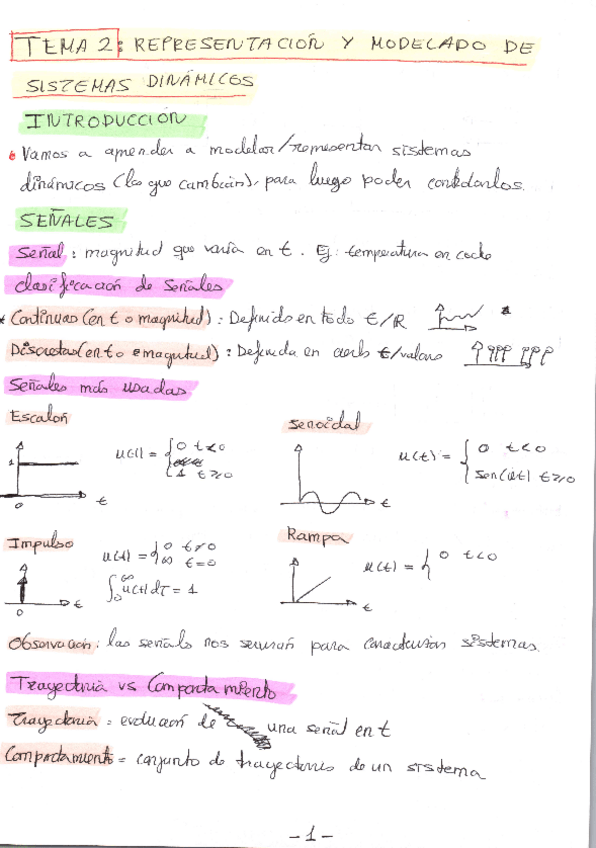 TEMA 2: REPRESENTACIÓN Y MODELADO DE
SISTEMAS DINÁMICOS
INTRODUCCIÓN
Vamos a aprender a modelar/representar sistemas
dinámicos (los que cambian), para luego poder controlarlos.
SEÑALES
Señal: magnitud que varía en t. Ej: temperatura en coche
Clasificación de señales
Continuas (en t o magnitud): Definida en todo t/R
Discretas (en t o magnitud): Definida en t/valores
Señales más usadas
Escalón
u(t) = { 0 t<0
1 t≥0
1
0
t
Senoidal
u(t) = { 0 t<0
sen(ωt) t≥0
t
Impulso
u(t) = { 0 t≠0
∞ t=0
∫₀^∞ u(t)dτ = 1
0
t
Rampa
u(t) = { 0 t<0
t
Observación: las señales nos servirán para caracterizar sistemas.
Trayectoria vs Comportamiento
Trayectoria: evolución de una señal en t
Comportamiento = conjunto de trayectorias de un sistema
-1-